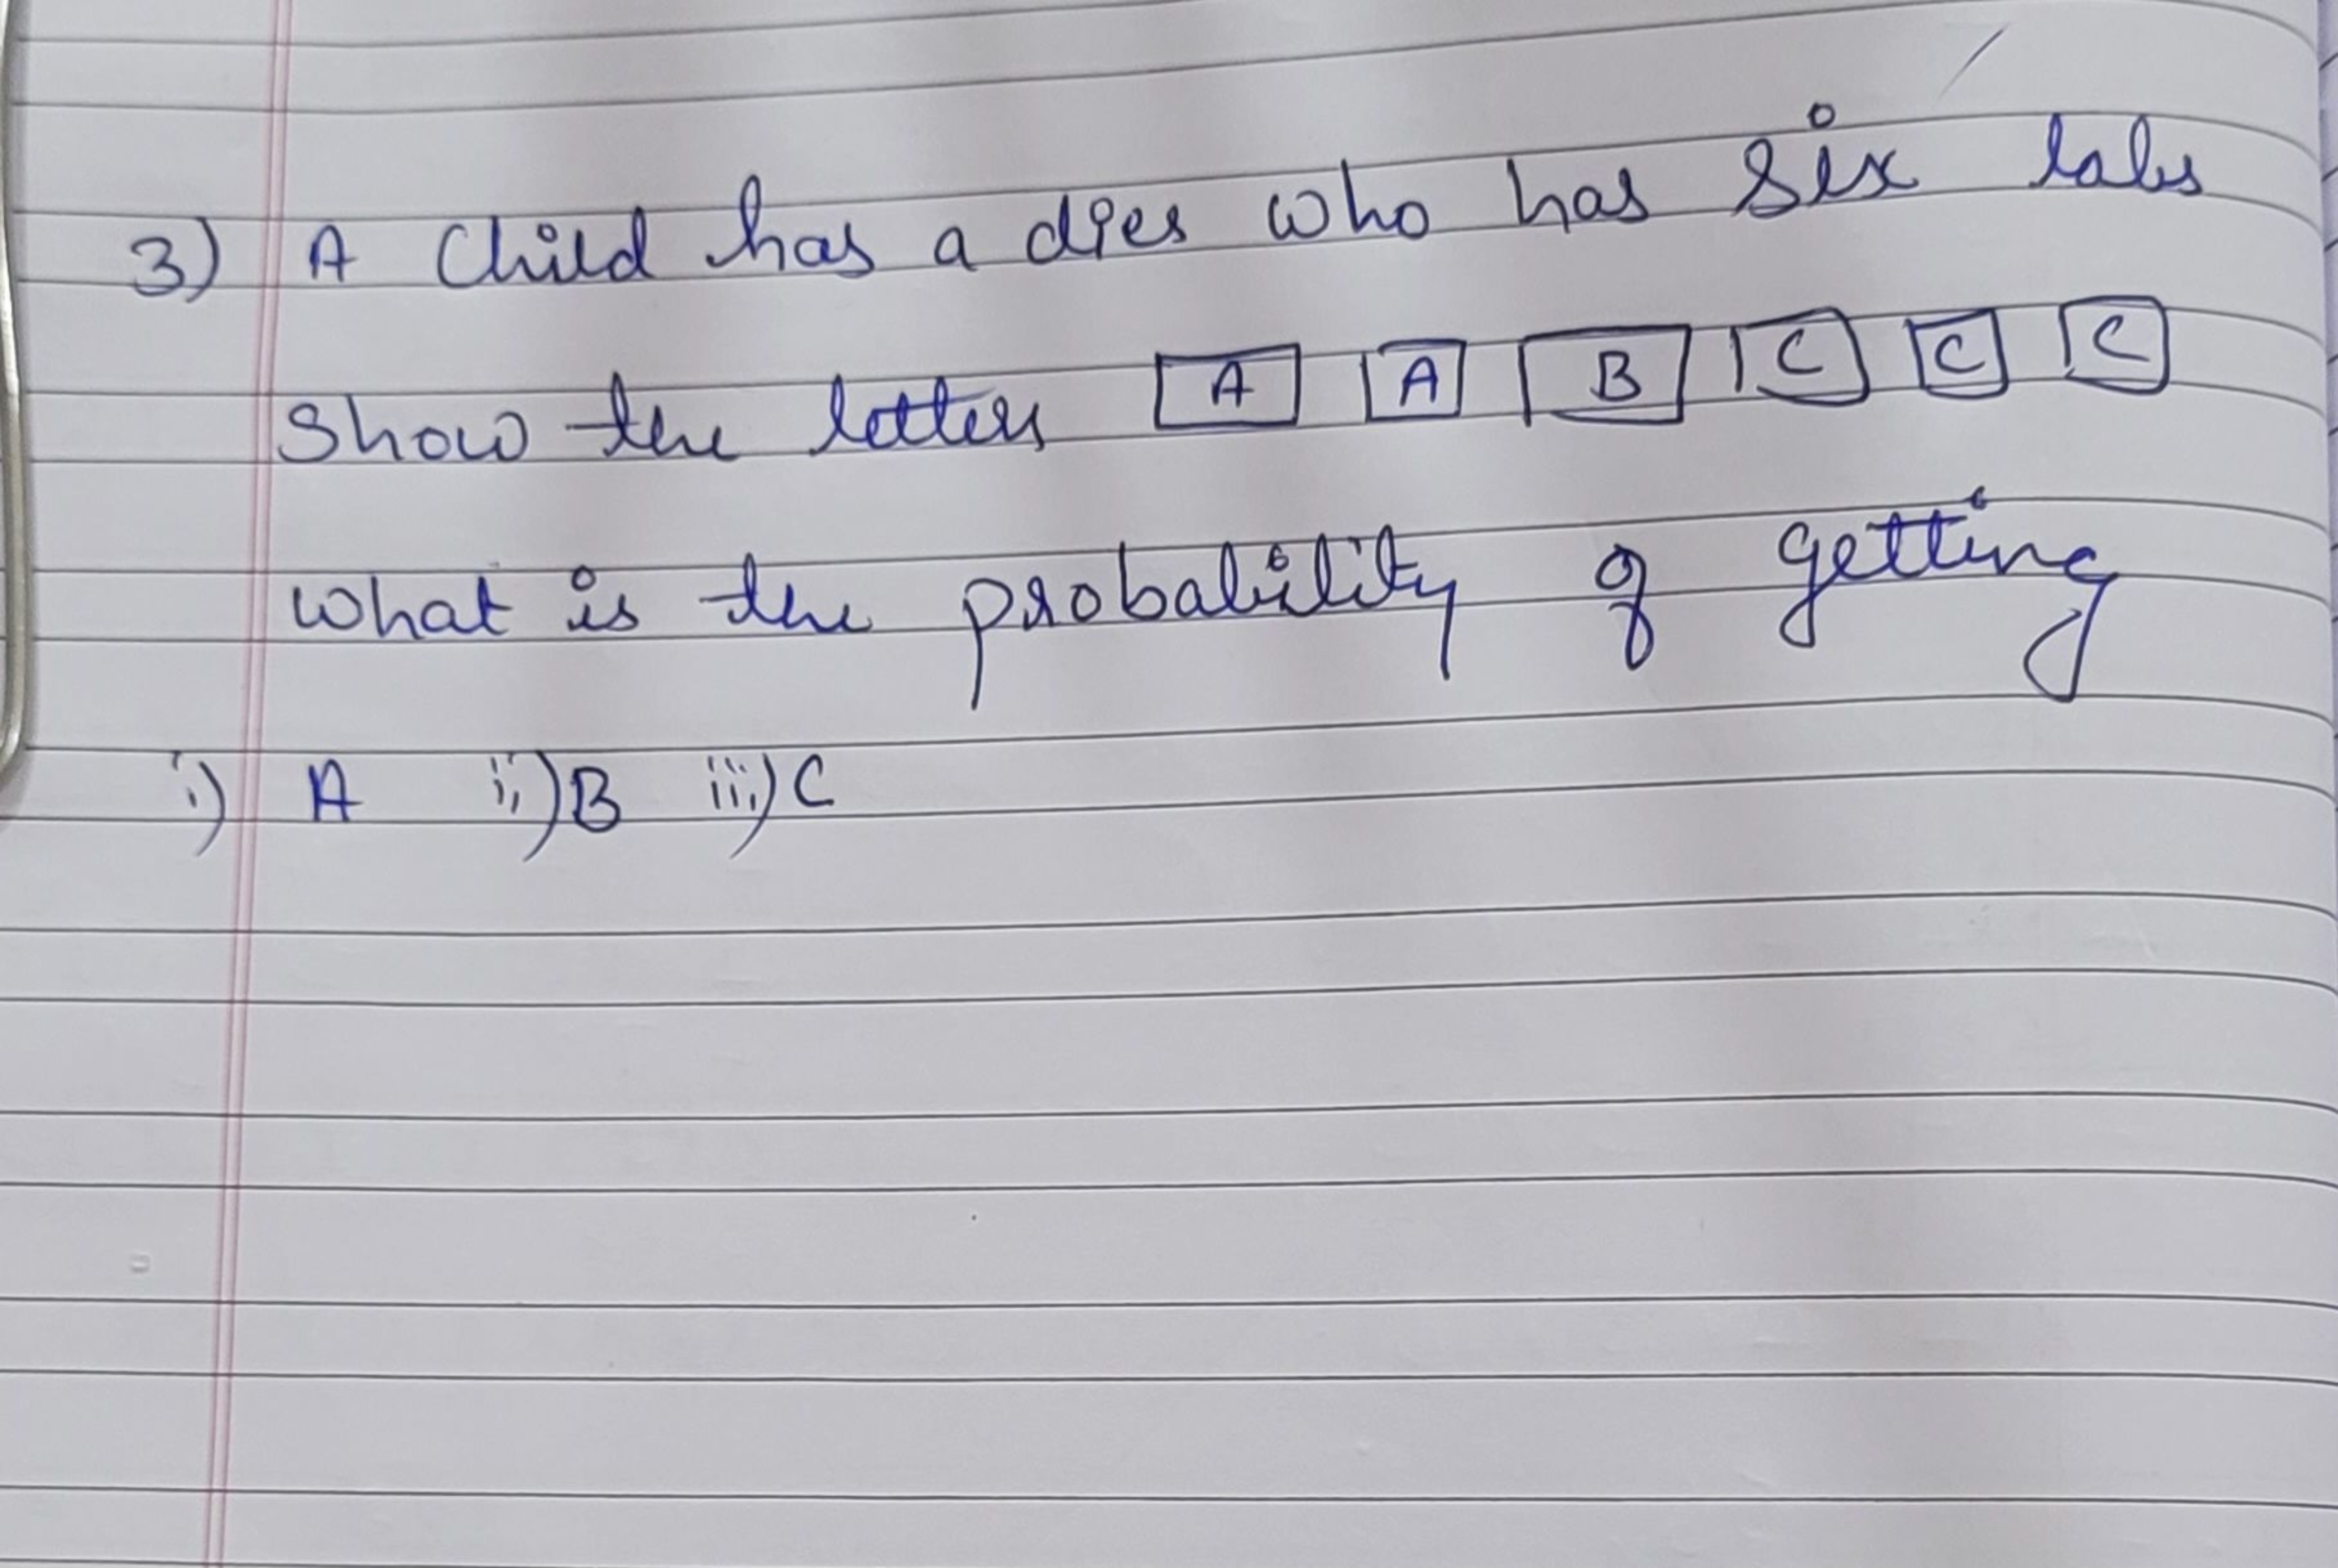 3) A Child has a dies who has six labs
Show the letters A A B C C C
what is the probability of getting
i) A ii) B iii) C